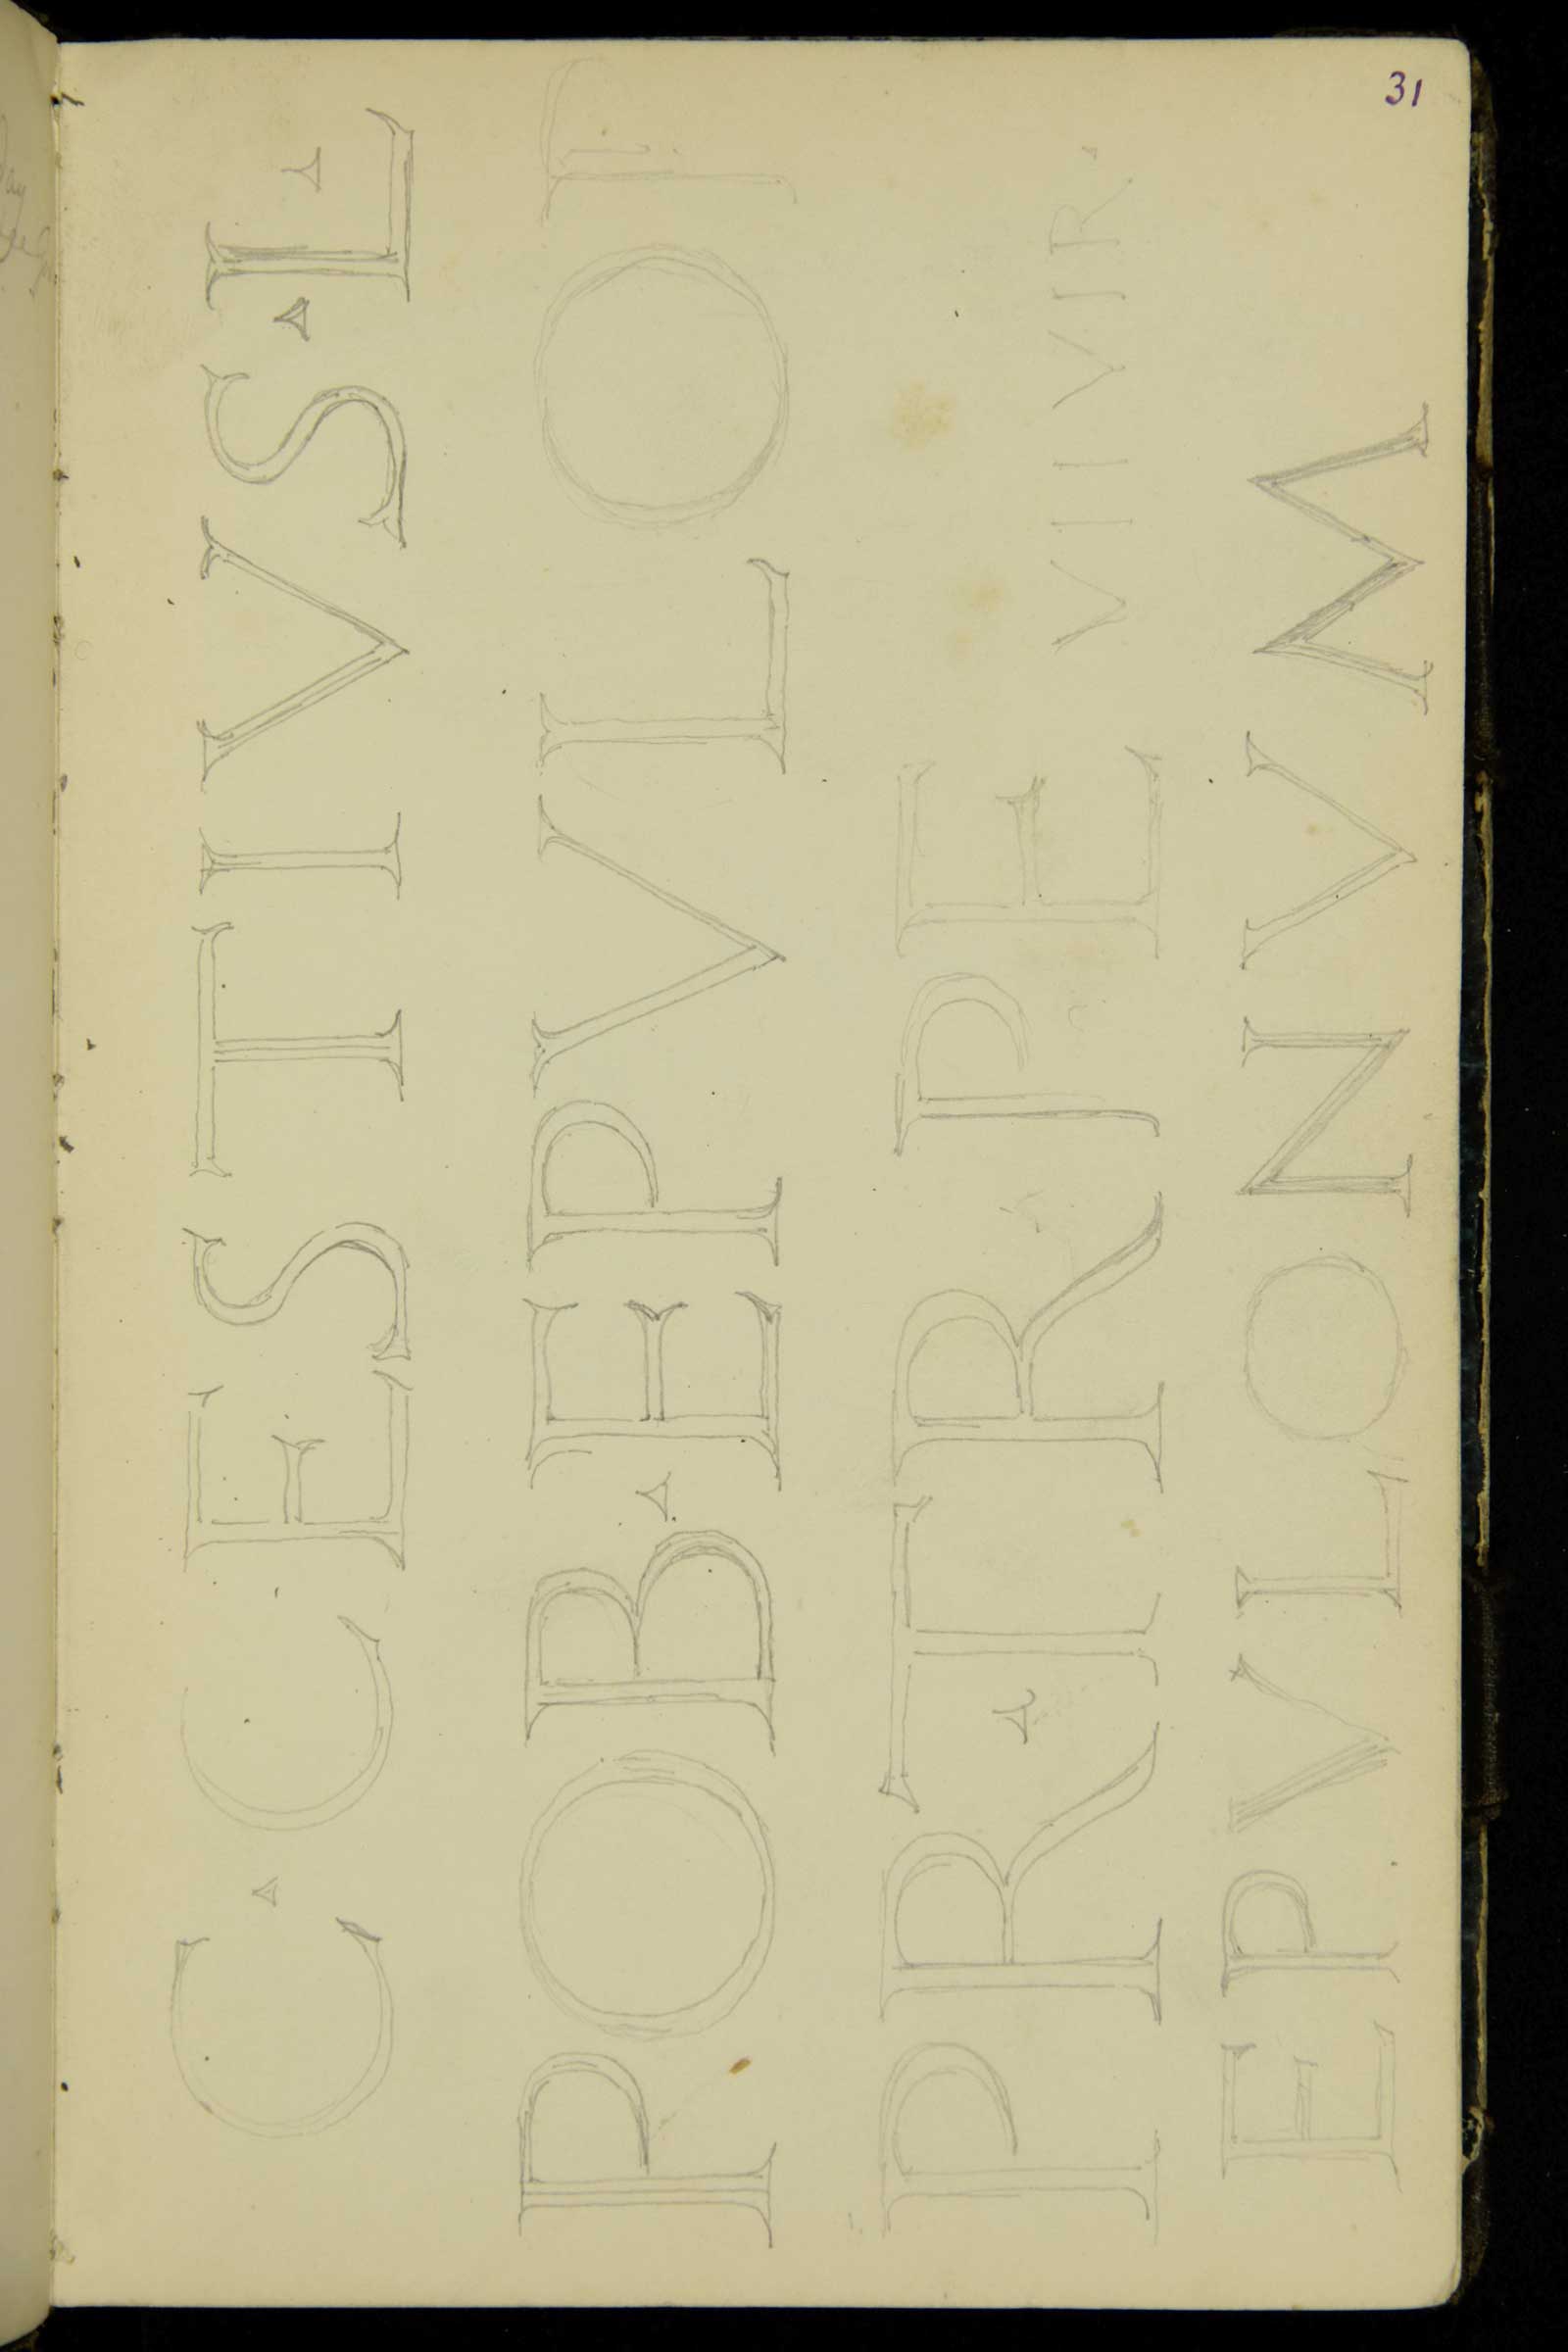 31
C · CESTIVS · L ·
POB · EPVLO
PR · TR PE VIIVIR ·
EPVLONVM